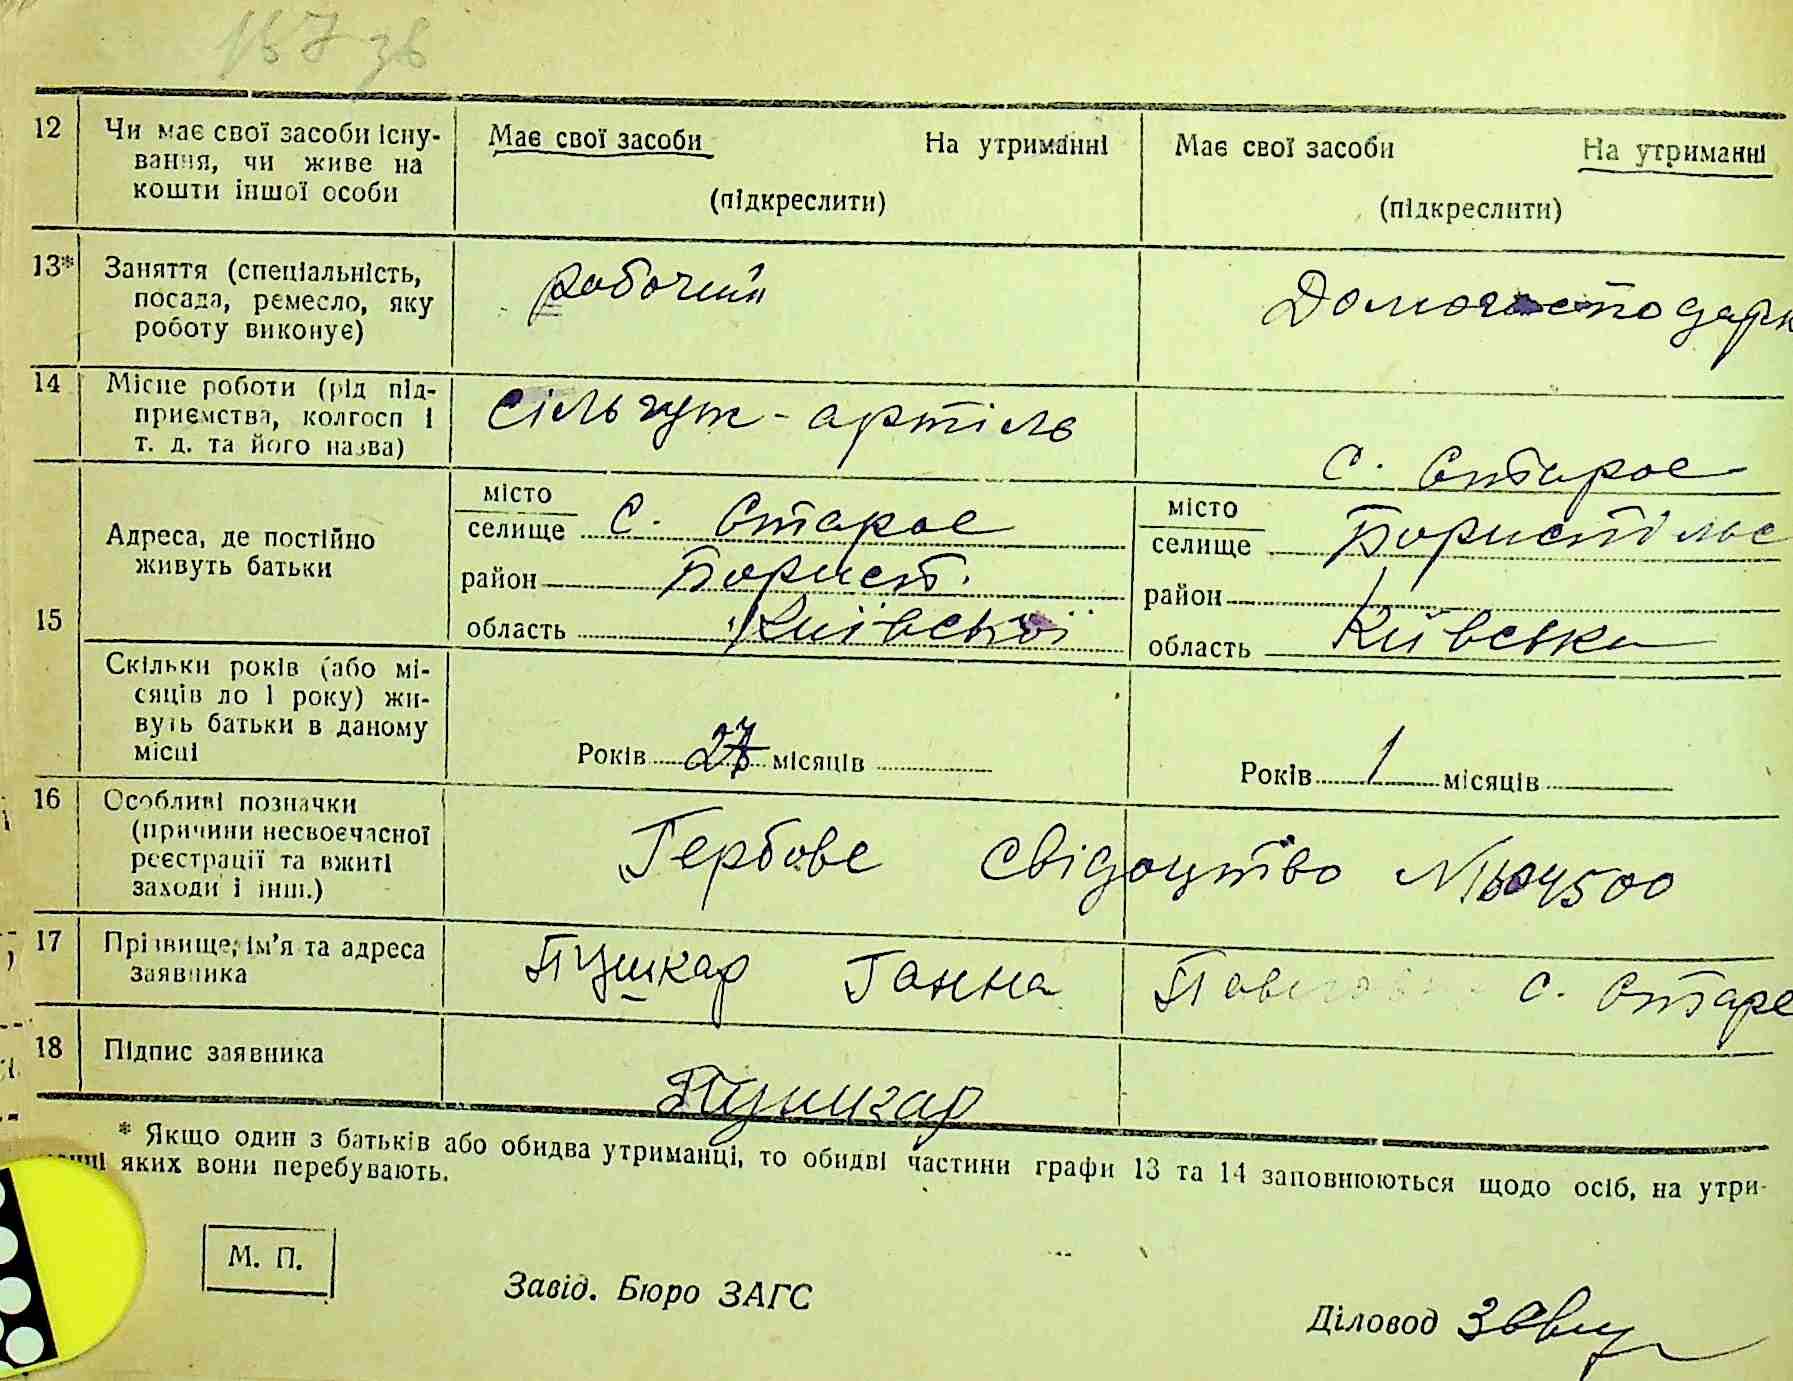 157 зв
12 Чи має свої засоби існу-
вання, чи живе на
кошти іншої особи
Має свої засоби На утриманні
(підкреслити)
Має свої засоби На утриманні
(підкреслити)
13* Заняття (спеціальність,
посада, ремесло, яку
роботу виконує)
робочий
Домогосподарк
14 Місце роботи (рід під-
приємства, колгосп і
т. д. та його назва)
Сільгут-артіль
15 Адреса, де постійно
живуть батьки
місто
селище с. Старое
район Борисп.
область Київської
с. Старое
місто
селище Бориспільс
район
область Київська
Скільки років (або мі-
сяців до 1 року) жи-
вуть батьки в даному
місці
Років 27 місяців
Років 1 місяців
16 Особливі позначки
(причини несвоєчасної
реєстрації та вжиті
заходи і інш.)
Гербове свідоцтво №
17 Прізвище, ім'я та адреса
заявника
Пушкар Ганна Павловна с. Старе
18 Підпис заявника
Пушкар
* Якщо один з батьків або обидва утриманці, то обидві частини графи 13 та 14 заповнюються щодо осіб, на утри-
манні яких вони перебувають.
М. П.
Завід. Бюро ЗАГС
Діловод